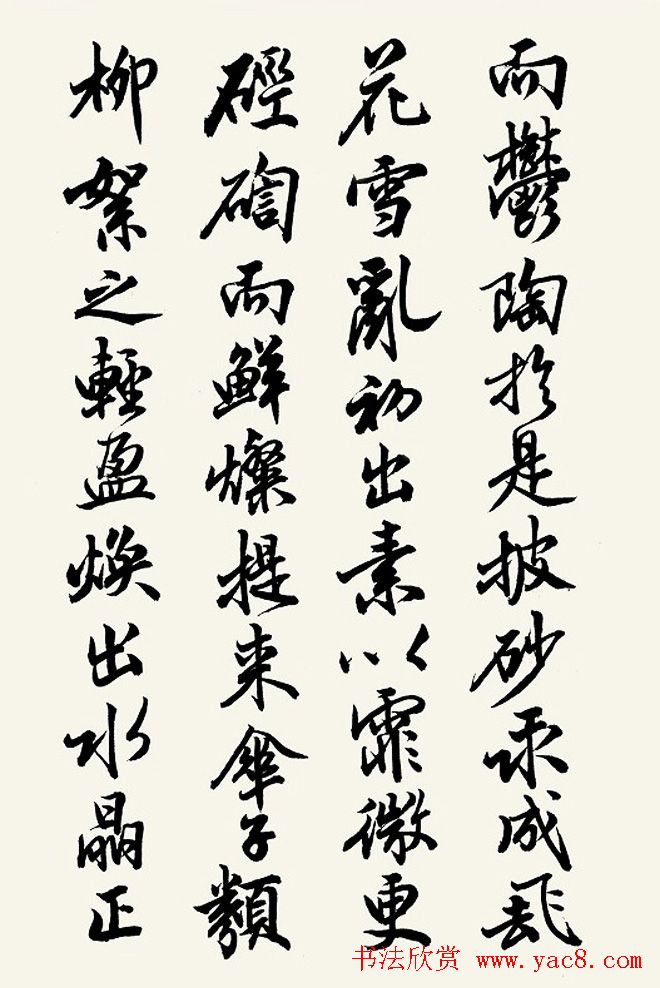 而鬱陶於是披砂成飛
花雪亂初出素以霏微更
硜而鮮燦提来傘子類
柳絮之輕盈煥出水晶正
书法欣赏 www.yac8.com